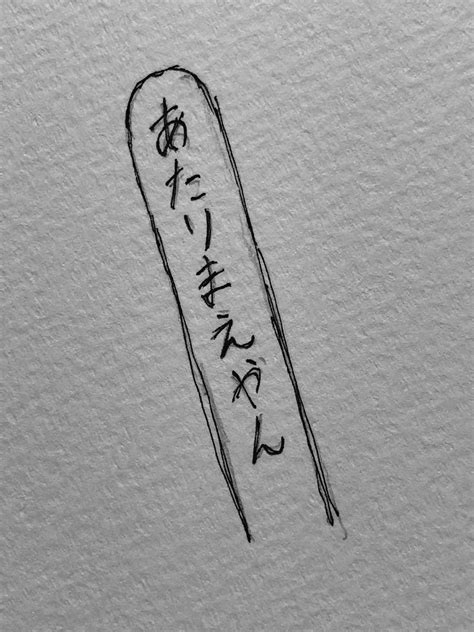 あたりまえやん